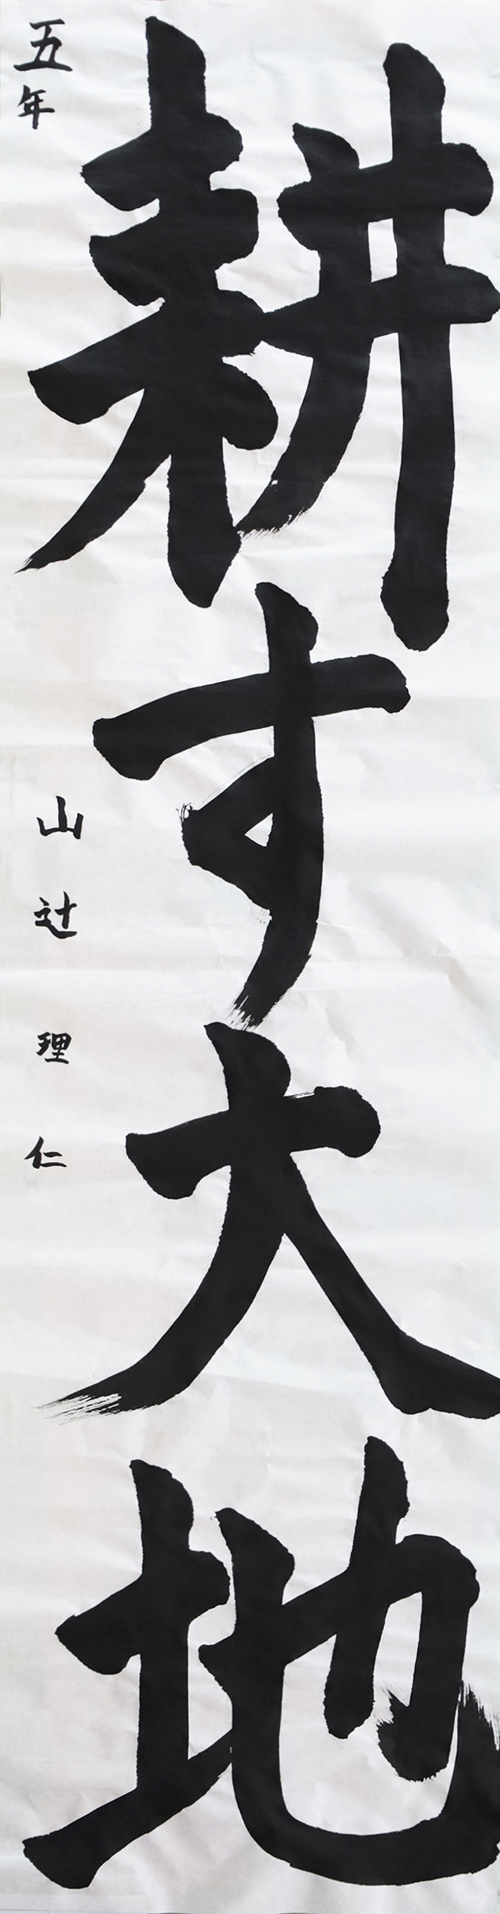 耕す大地
五年
山辻理仁